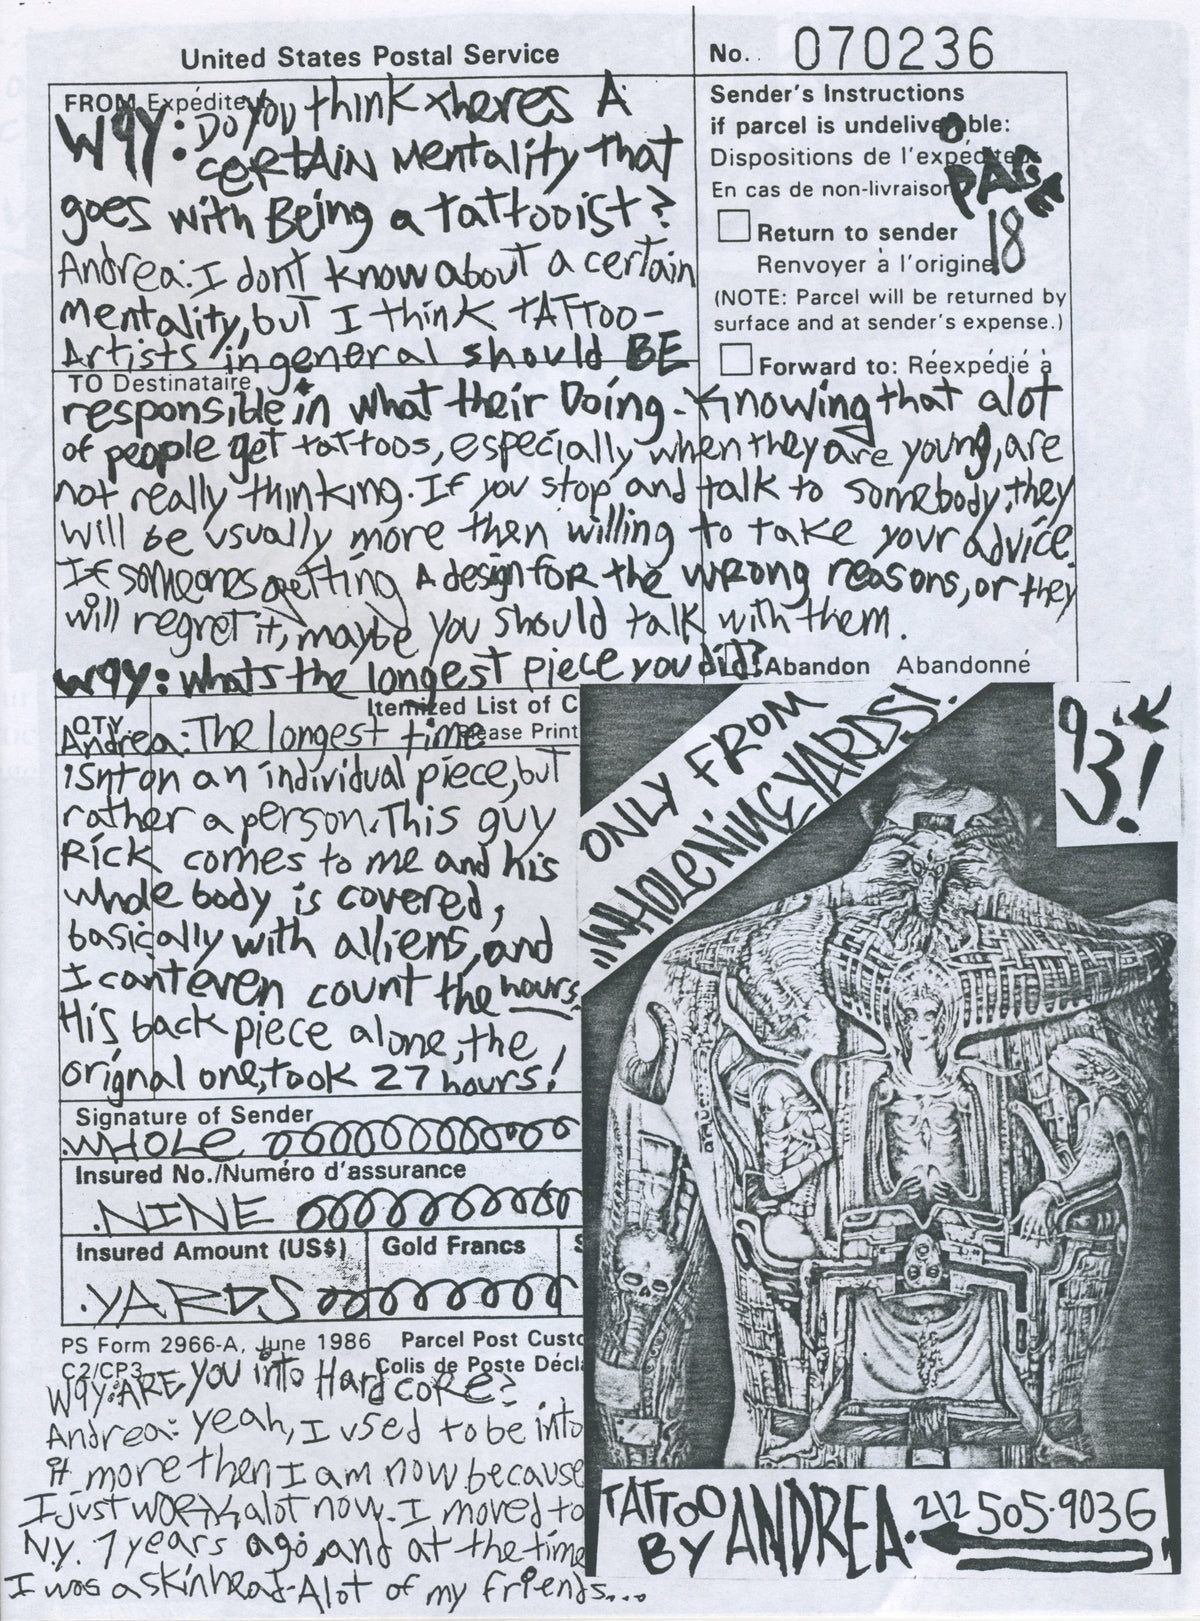 United States Postal Service
No. 070236
FROM Expéditeur
W9Y: Do you think theres A
CERTAiN mentality that
goes with Being a tattooist?
Andrea: I dont know about a certain
mentality, but I think TATToo-
Artists in general should BE
Sender's Instructions
if parcel is undeliverable:
Dispositions de l'expéditeur
En cas de non-livraison
PAGE
18
Return to sender
Renvoyer à l'origine
(NOTE: Parcel will be returned by
surface and at sender's expense.)
Forward to: Réexpédié à
TO Destinataire
responsible in what their Doing. Knowing that alot
of people get tattoos, especially when they are young, are
not really thinking. If you stop and talk to somebody, they
will be usually more then willing to take your advice.
If someones getting A design for the wrong reasons, or they
will regret it, maybe you should talk with them.
W9Y: whats the longest piece you did?
Abandon Abandonné
Itemized List of C
QTY
Please Print
Andrea: The longest time
isnt on an individual piece, but
rather a person. This guy
Rick comes to me and his
whole body is covered,
basically with alliens, and
I cant even count the hours.
His back piece alone, the
orignal one, took 27 hours!
ONLY FROM
"WHOLE NINE YARDS!"
93!
Signature of Sender
WHOLE
Insured No./Numéro d'assurance
.NINE
Insured Amount (US$) Gold Francs S
.YARDS
PS Form 2966-A, June 1986 Parcel Post Custo
C2/CP3 Colis de Poste Décla
W9Y: ARE you into Hardcore?
Andrea: yeah, I used to be into
it more then I am now because
I just work alot now. I moved to
N.Y. 7 years ago, and at the time
I was a skinhead. Alot of my friends....
TATTOO
BY ANDREA. 212 505-9036